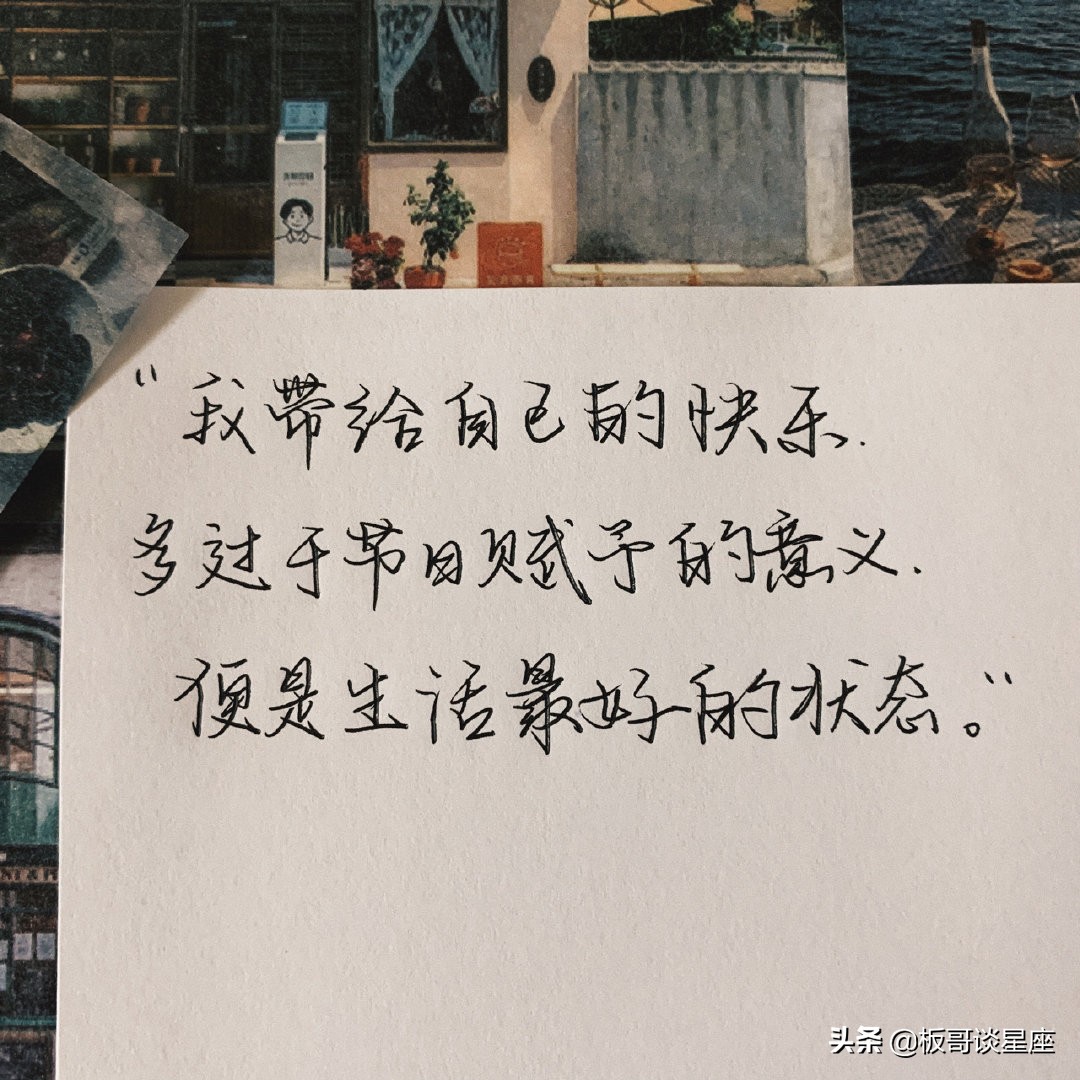 “我带给自己的快乐.
多过于节日赋予的意义.
便是生活最好的状态。”
头条 @板哥谈星座